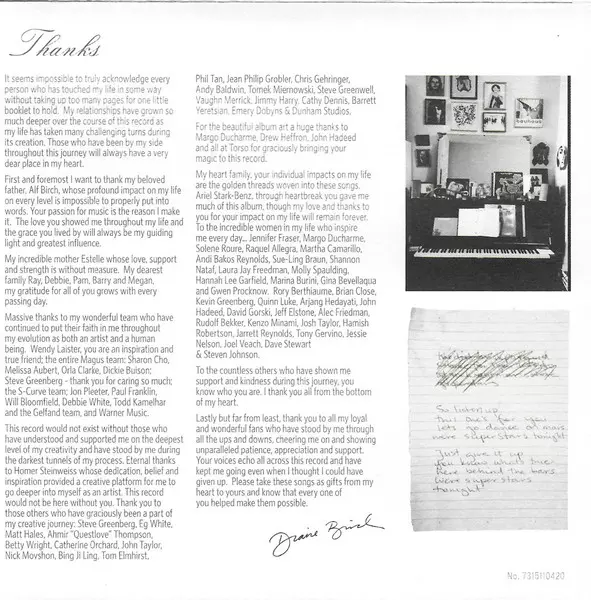 Thanks
It seems impossible to truly acknowledge every
person who has touched my life in some way
without taking up too many pages for one little
booklet to hold. My relationships have grown so
much deeper over the course of this record as
my life has taken many challenging turns during
its creation. Those who have been by my side
throughout this journey will always have a very
dear place in my heart.
First and foremost I want to thank my beloved
father, Alf Birch, whose profound impact on my life
on every level is impossible to properly put into
words. Your passion for music is the reason I make
it. The love you showed me throughout my life and
the grace you lived by will always be my guiding
light and greatest influence.
My incredible mother Estelle whose love, support
and strength is without measure. My dearest
family Ray, Debbie, Pam, Barry and Megan,
my gratitude for all of you grows with every
passing day.
Massive thanks to my wonderful team who have
continued to put their faith in me throughout
my evolution as both an artist and a human
being. Wendy Laister, you are an inspiration and
true friend; the entire Magus team: Sharon Cho,
Melissa Aubert, Orla Clarke, Dickie Buison;
Steve Greenberg - thank you for caring so much;
the S-Curve team; Jon Pleeter, Paul Franklin,
Will Bloomfield, Debbie White, Todd Kamelhar
and the Gelfand team, and Warner Music.
This record would not exist without those who
have understood and supported me on the deepest
level of my creativity and have stood by me during
the darkest tunnels of my process. Eternal thanks
to Homer Steinweiss whose dedication, belief and
inspiration provided a creative platform for me to
go deeper into myself as an artist. This record
would not be here without you. Thank you to
those others who have graciously been a part of
my creative journey: Steve Greenberg, Eg White,
Matt Hales, Ahmir "Questlove" Thompson,
Betty Wright, Catherine Orchard, John Taylor,
Nick Movshon, Bing Ji Ling, Tom Elmhirst,
Phil Tan, Jean Philip Grobler, Chris Gehringer,
Andy Baldwin, Tomek Miernowski, Steve Greenwell,
Vaughn Merrick, Jimmy Harry, Cathy Dennis, Barrett
Yeretsian, Emery Dobyns & Dunham Studios.
For the beautiful album art a huge thanks to
Margo Ducharme, Drew Heffron, John Hadeed
and all at Torso for graciously bringing your
magic to this record.
My heart family, your individual impacts on my life
are the golden threads woven into these songs.
Ariel Stark-Benz, through heartbreak you gave me
much of this album, though my love and thanks to
you for your impact on my life will remain forever.
To the incredible women in my life who inspire
me every day... Jennifer Fraser, Margo Ducharme,
Solene Roure, Raquel Allegra, Martha Camarillo,
Andi Bakos Reynolds, Sue-Ling Braun, Shannon
Nataf, Laura Jay Freedman, Molly Spaulding,
Hannah Lee Garfield, Marina Burini, Gina Bevellaqua
and Gwen Procknow. Rory Berthiaume, Brian Close,
Kevin Greenberg, Quinn Luke, Arjang Hedayati, John
Hadeed, David Gorski, Jeff Elstone, Alec Friedman,
Rudolf Bekker, Kenzo Minami, Josh Taylor, Hamish
Robertson, Jarrett Reynolds, Tony Gervino, Jessie
Nelson, Joel Veach, Dave Stewart
& Steven Johnson.
To the countless others who have shown me
support and kindness during this journey, you
know who you are. I thank you all from the bottom
of my heart.
Lastly but far from least, thank you to all my loyal
and wonderful fans who have stood by me through
all the ups and downs, cheering me on and showing
unparalleled patience, appreciation and support.
Your voices echo all across this record and have
kept me going even when I thought I could have
given up. Please take these songs as gifts from my
heart to yours and know that every one of
you helped make them possible.
Diane Birch
bauhaus
So listen up
this one's for you
lets go dance on mars
we're superstars tonight
Just give it up
you know whats true
Here behind the bars
We're superstars
tonight
No. 7315110420